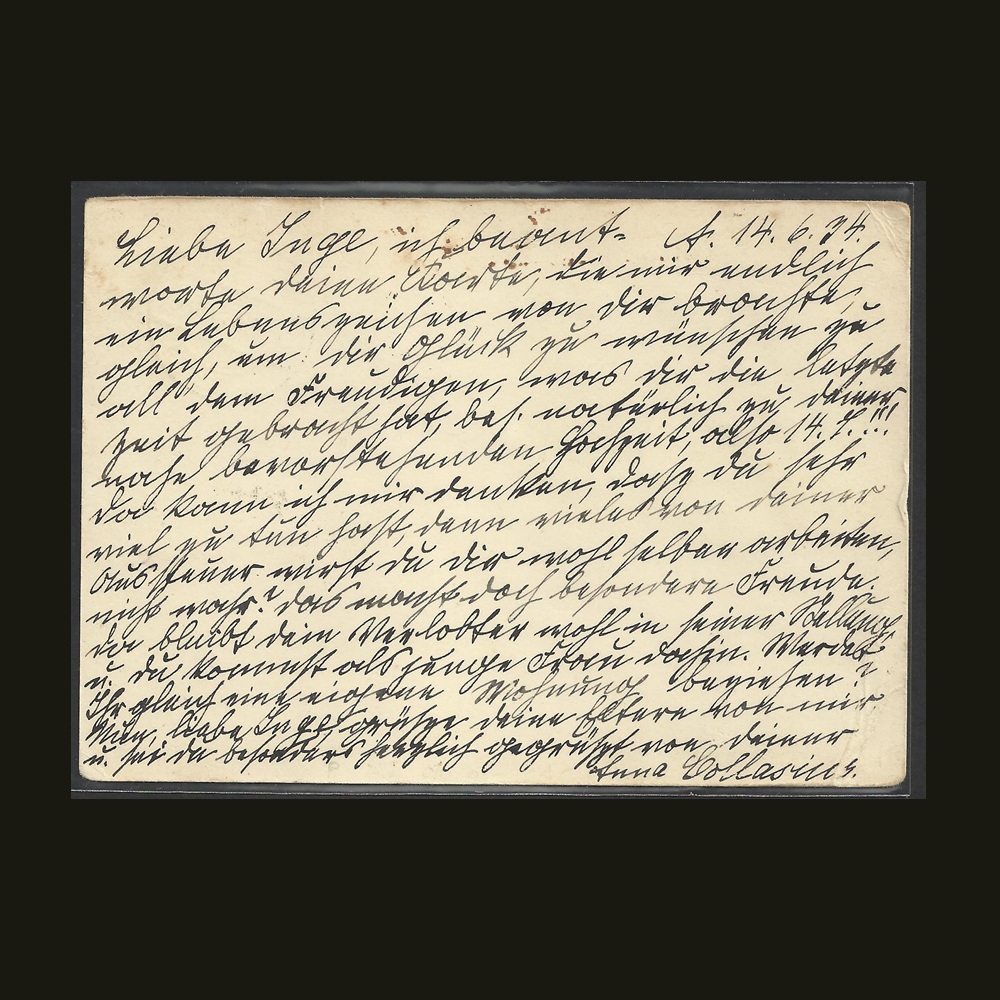 Liebe Inge, ich beant- A. 14. 6. 34.
worte deine Karte, die mir endlich
ein Lebenszeichen von dir brachte,
gleich, um dir Glück zu wünschen zu
all dem Freudigen, was dir die letzte
Zeit gebracht hat, bes. natürlich zu deiner
nahe bevorstehenden Hochzeit, also 14. 7.!!!
Da kann ich mir denken, dasz du sehr
viel zu tun hast, denn vieles von deiner
Aussteuer wirst du dir wohl selber arbeiten,
nicht wahr? Das macht doch besondere Freude.
Da bleibt dein Verlobter wohl in seiner Stellung,
u. du kommst als junge Frau dahin. Werdet
Ihr gleich eine eigene Wohnung beziehen?
Nun, liebe Inge, grüsze deine Eltern von mir
u. sei du besonders herzlich gegrüszt von deiner
Anna Collasius.